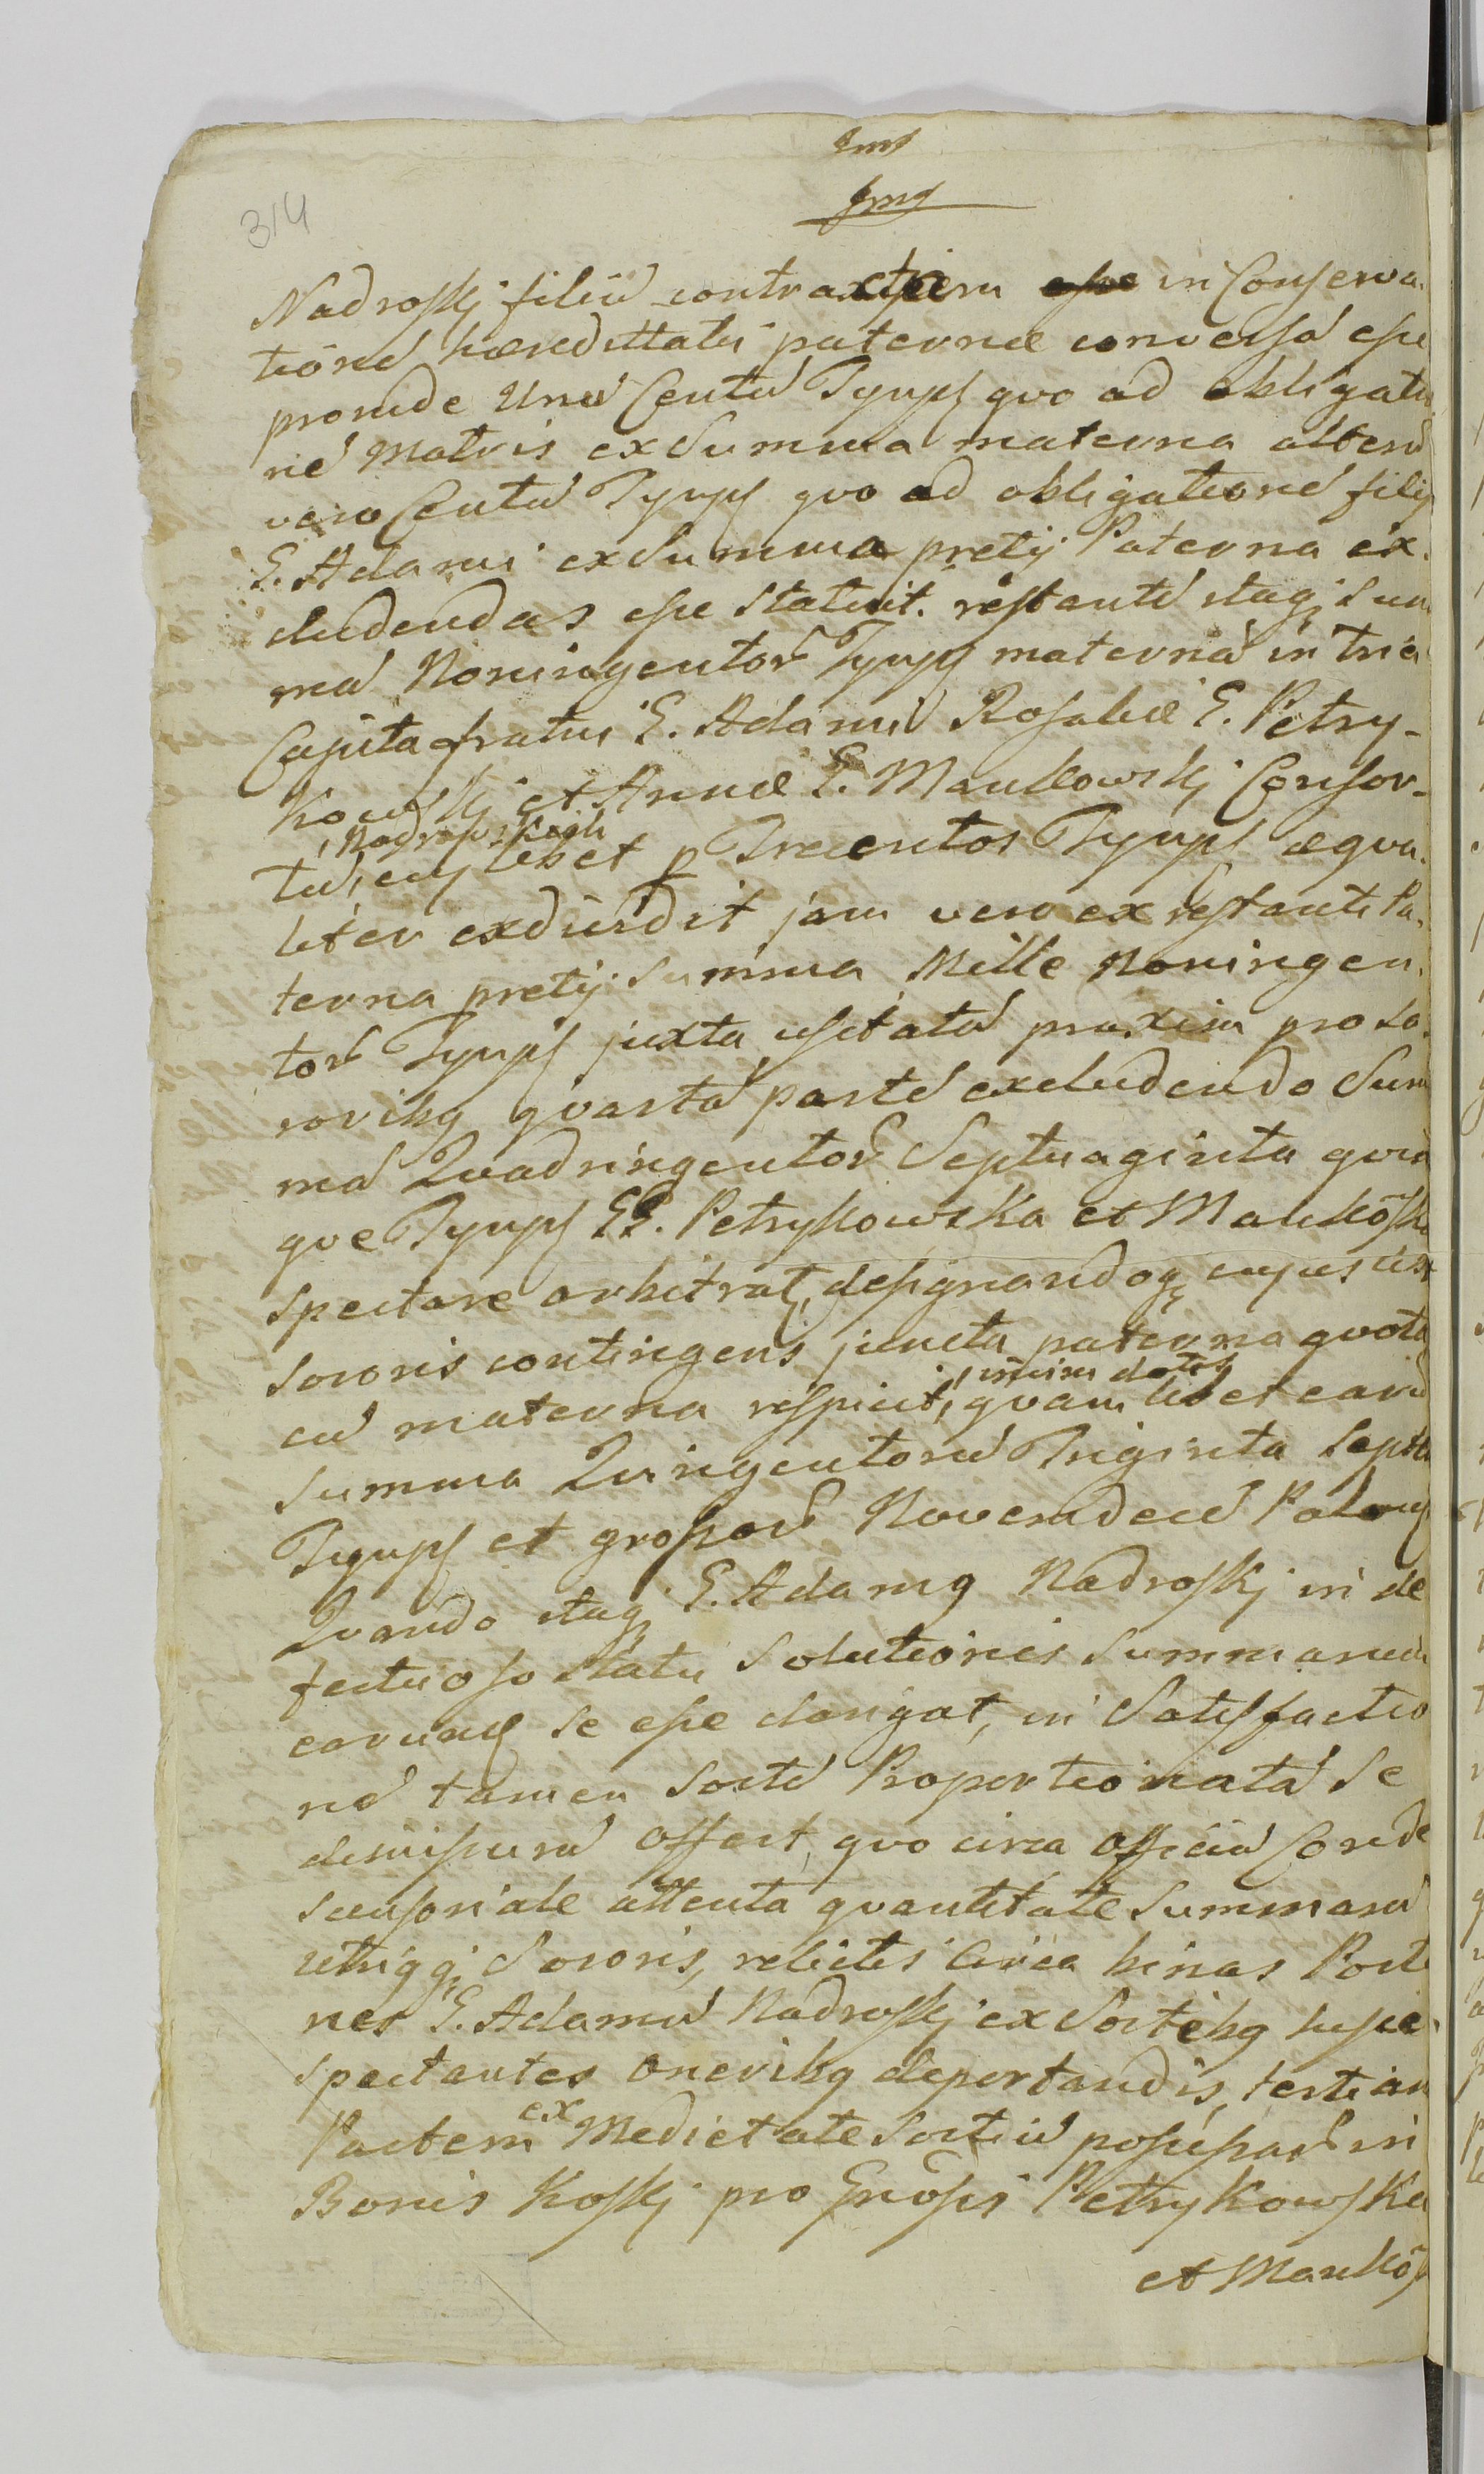 314
Nadrosski filiū contractam in Conserva-
tionē hæredittatis paternæ conversā esse
proinde Unū Centū Tynpf qvo ad obligatio
nē Matris ex Summa materna alterū
vero Centū Tynpf qvo ad obligationē filij
G. Adami ex Summa pretij Paterna ex-
cludendas esse statuit. restantē itaq Sum
mā Noningentor Tynpf maternā in tria
Capita fratris G. Adami Rosaliæ G. Petry-
kowski et Annæ G. Mankowski Consor-
Nadrowskich
tū, cuilibet p Trecentos Tynpf æqva-
liter exdividit jam vero ex restanti Pa-
terna pretij Summa Mille Noningen-
tor Tynpf juxta usitatā praxim pro so-
roribq qvartā partē excludendo Sum
mā Qvadringentor Septuaginta qvin
qve Tynpf GG. Petrykowska et Mankōska
spectare arbitrat, designandoq cujusvis
sororis contingens juncta paterna qvota
cū materna respicit, qvamlibet earū
vnicim dotis
Summa Qvingentorū Triginta Septē
Tynpf et grossor Novemdecē
Qvando itaq G. Adamq Nadrosski in de
fectuoso statu Solutionis Summarum
earunq se esse clangat, in Satisfactio
nē tamen Sortē Proportionatā se
dimissurū offert, qvo circa Officiū Conde
scensoriale attenta qvantitate Summarū
utriqq Sororis, relictis circa binas Porti
nes G. Adamū Nadrosski ex Sortibq
spectantes oneribq deportandis, tertiam
Partem ex Medietate Sortiū possessar in
Bonis Koski pro Gnosis Petrykowska
et Mankōs